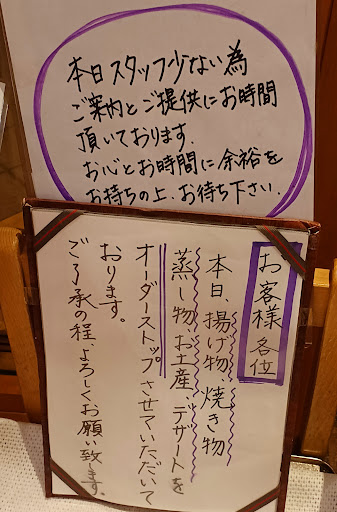 本日スタッフ少ない為
ご案内とご提供にお時間
頂いております.
お心とお時間に余裕を
お持ちの上、お待ち下さい.
お客様 各位
本日、揚げ物、焼き物
蒸し物、お土産、デザートを
オーダーストップさせていただいて
おります。
ご了承の程、よろしくお願い致します。